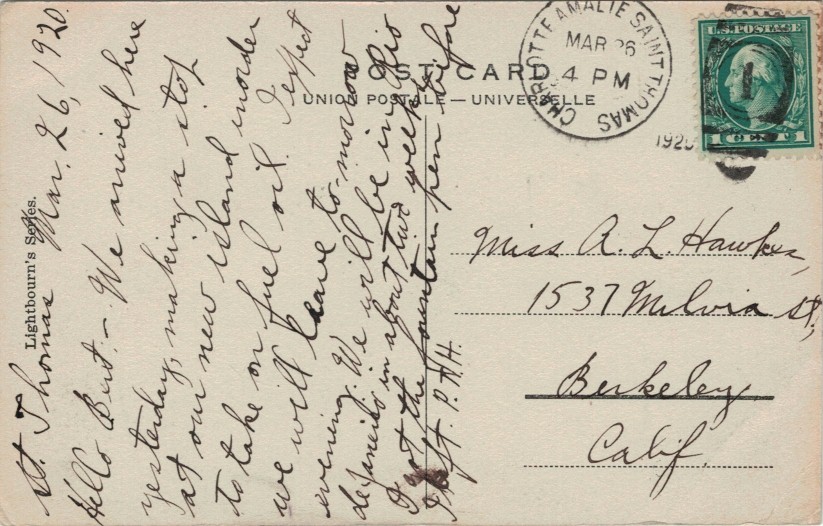 St. Thomas Mar. 26, 1920.
Hello Bert. - We arrived here
yesterday, making a stop
at our new island inorder
to take on fuel oil. I expect
we will leave to-morrow
evening. We will be in Rio
de Janeiro in about two weeks.
I got the fountain pen before
I left. P.H.H.
Lightbourn's Series.
POST CARD
UNION POSTALE — UNIVERSELLE
CHARLOTTE AMALIE SAINT THOMAS
MAR 26
4 PM
1920
U.S. POSTAGE
1 1
1
Miss A. L. Hawkes,
1537 Milvia St.,
Berkeley
Calif.